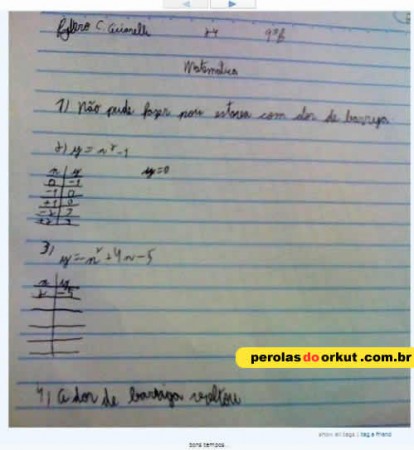 24 9ºB
Matemática
1) Não pude fazer pois estava com dor de barriga
2) y = x² - 1
x y y=0
0 -1
-1 0
+1 0
-2 3
+2 3
3)
y = x² + 4x - 5
x y
perolasdoorkut.com.br
4) A dor de barriga voltou
show all tags | tag a friend
bons tempos...